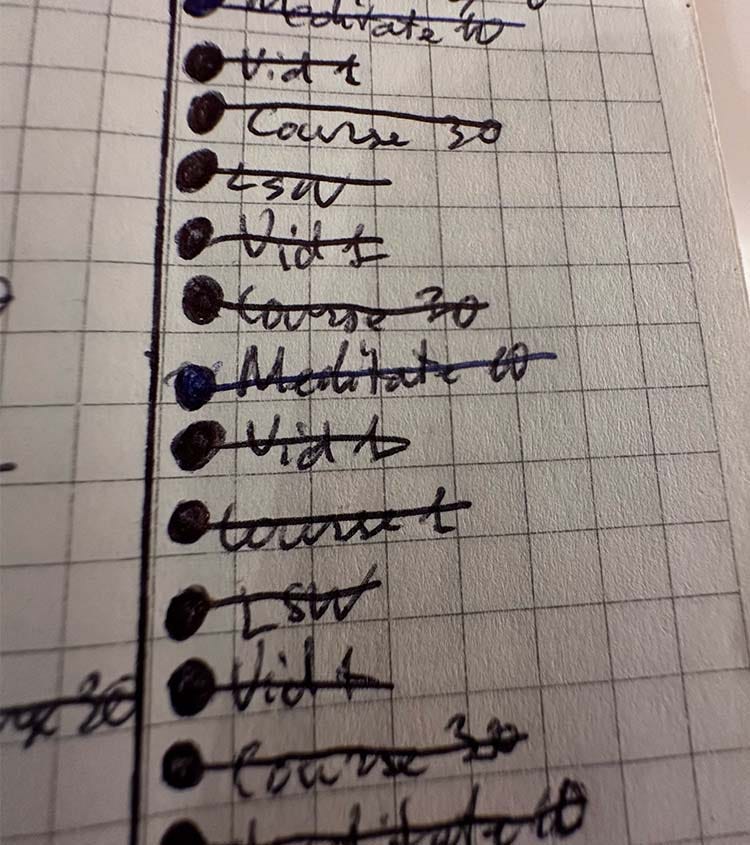 Meditate 10
Vid 1
Course 30
LSW
Vid 1
Course 30
Meditate 10
Vid 1
Course 1
LSW
Vid 1
30
Course 30
10